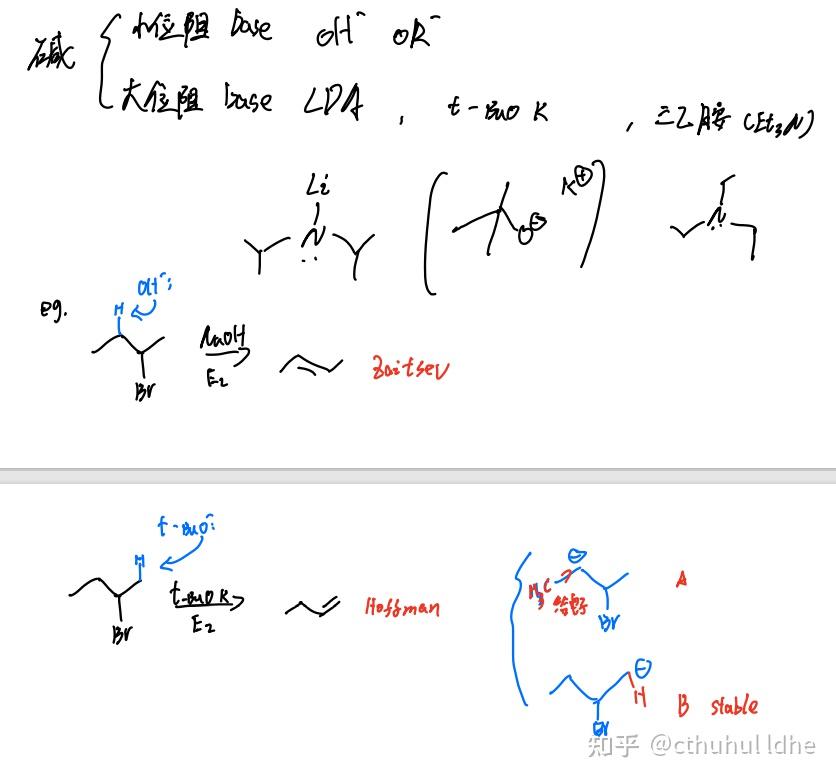 碱
小位阻 base OH⁻ OR⁻
大位阻 base LDA , t-BuO K , 三乙胺 (Et₃N)
Li
N
K⊕
O⊖
N
eg.
OH⁻:
H
Br
NaOH
E₂
Zaitsev
t-BuO⁻:
H
Br
t-BuOK
E₂
Hoffman
⊖
H₃C
给电子
Br
A
⊖
H
Br
B stable
知乎 @cthuhulldhe